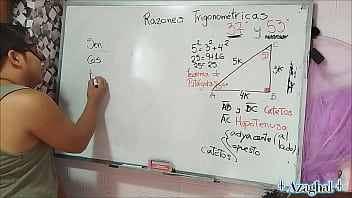 Razones Trigonométricas
37° y 53°
Sen
Cos
t
5²=3²+4²
25=9+16
25=25
Teorema de
Pitágoras
5K
53°
3K
37°
4K
A
B
C
AB y BC Catetos
AC Hipotenusa
catetos
adyacente (al lado)
opuesto
+Azaghal+